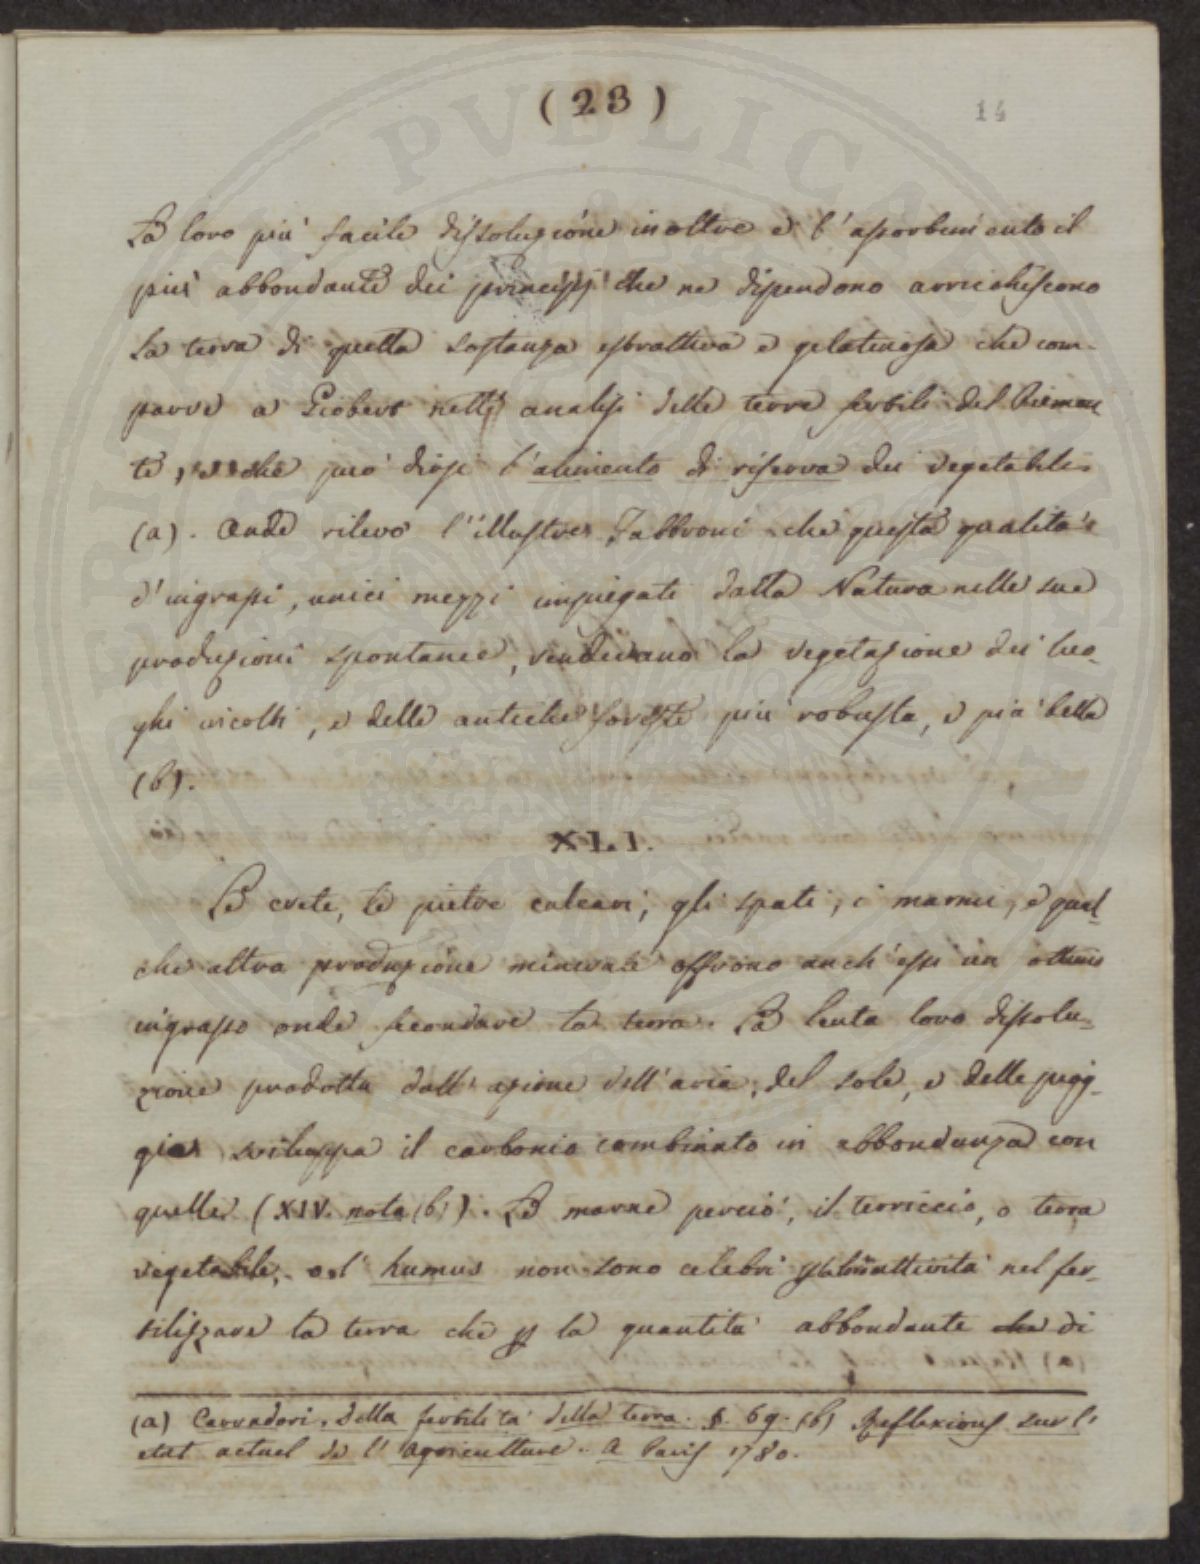 (23)
14
La loro più facile dissoluzione inoltre e l'assorbimento il
più abbondante dei principj che ne dipendono arricchiscono
la terra di quella sostanza estrattiva e gelatinosa che com-
parve a Giobert nelle analisi delle terre fertili del Piemon
te, e che può dirsi l'alimento di riserva dei vegetabili
(a). Onde rilevò l'illustre Fabbroni che questa qualità
d'ingrassi, unici mezzi impiegati dalla Natura nelle sue
produzioni spontanee, rendevano la vegetazione dei luo-
ghi incolti, e delle antiche foreste più robusta, e più bella
(b).
XLI.
Le crete, le pietre calcari, gli spati, i marmi, e qual-
che altra produzione minerale offrono anch'essi un ottimo
ingrasso onde fecondare la terra. La lenta loro dissolu-
zione prodotta dall'azione dell'aria, del sole, e delle piog-
gie sviluppa il carbonio combinato in abbondanza con
quelle (XIV. nota (b)). Le marne perciò, il terriccio, o terra
vegetabile, o l'humus non sono celebri attività nel fer-
tilizzare la terra che p la quantità abbondante che di
(a) Carradori, della fertilità della terra. §. 69. (b) Reflexions sur l'
etat actuel de l'agriculture. A Paris 1780.
PVBLICA